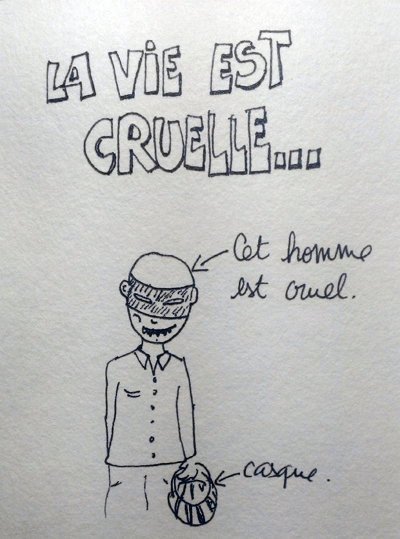 LA ViE EST
CRUELLE...
Cet homme
est cruel.
casque.